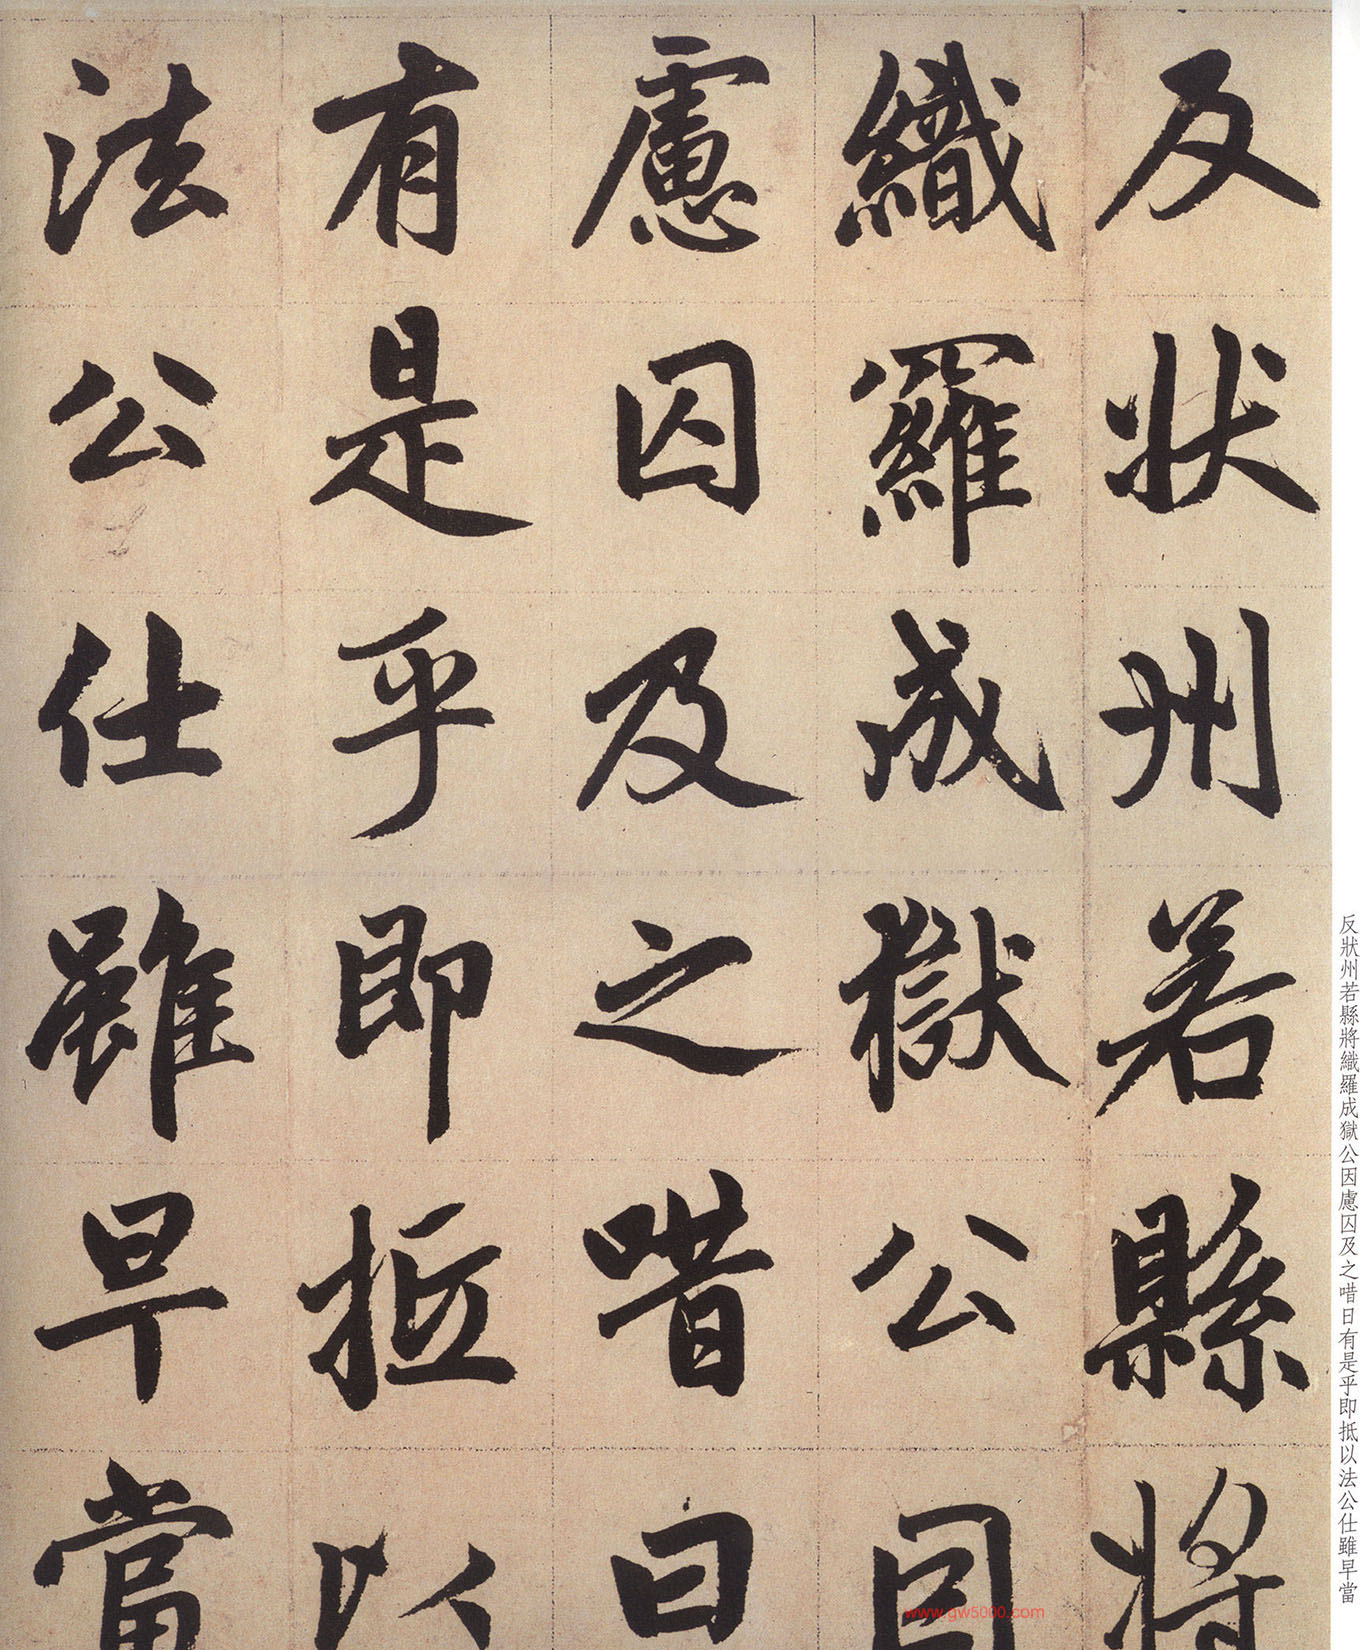 反狀州若縣將
織羅成獄公因
慮囚及之唶曰
有是乎即抵以
法公仕雖早當
反狀州若縣將織羅成獄公因慮囚及之唶日有是乎即抵以法公仕雖早當
www.gw5000.com